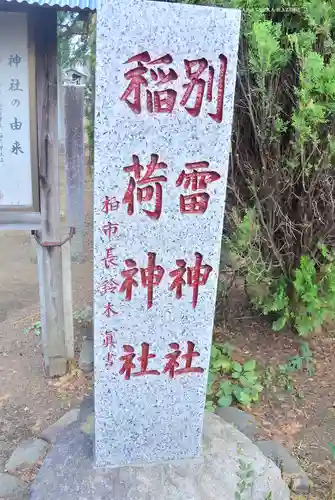 別雷神社
稲荷神社
柏市長鈴木真書
神社の由来